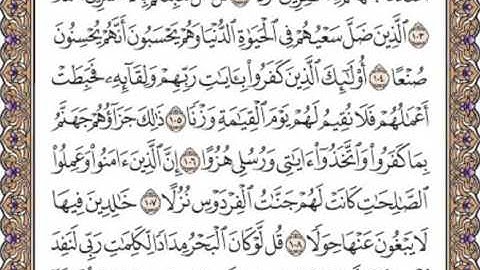 ١٠٣ ٱلَّذِينَ ضَلَّ سَعْيُهُمْ فِى ٱلْحَيَوٰةِ ٱلدُّنْيَا وَهُمْ يَحْسَبُونَ أَنَّهُمْ يُحْسِنُونَ
صُنْعًا ١٠٤ أُو۟لَـٰٓئِكَ ٱلَّذِينَ كَفَرُوا۟ بِـَٔايَـٰتِ رَبِّهِمْ وَلِقَآئِهِۦ فَحَبِطَتْ
أَعْمَـٰلُهُمْ فَلَا نُقِيمُ لَهُمْ يَوْمَ ٱلْقِيَـٰمَةِ وَزْنًا ١٠٥ ذَٰلِكَ جَزَآؤُهُمْ جَهَنَّمُ
بِمَا كَفَرُوا۟ وَٱتَّخَذُوٓا۟ ءَايَـٰتِى وَرُسُلِى هُزُوًا ١٠٦ إِنَّ ٱلَّذِينَ ءَامَنُوا۟ وَعَمِلُوا۟
ٱلصَّـٰلِحَـٰتِ كَانَتْ لَهُمْ جَنَّـٰتُ ٱلْفِرْدَوْسِ نُزُلًا ١٠٧ خَـٰلِدِينَ فِيهَا
لَا يَبْغُونَ عَنْهَا حِوَلًا ١٠٨ قُل لَّوْ كَانَ ٱلْبَحْرُ مِدَادًا لِّكَلِمَـٰتِ رَبِّى لَنَفِدَ